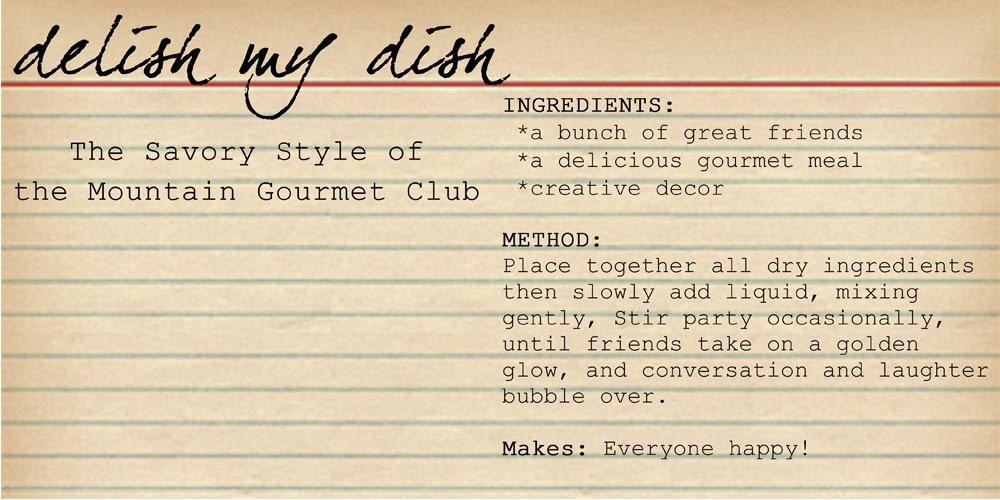 delish my dish
The Savory Style of
the Mountain Gourmet Club
INGREDIENTS:
*a bunch of great friends
*a delicious gourmet meal
*creative decor
METHOD:
Place together all dry ingredients
then slowly add liquid, mixing
gently, Stir party occasionally,
until friends take on a golden
glow, and conversation and laughter
bubble over.
Makes: Everyone happy!